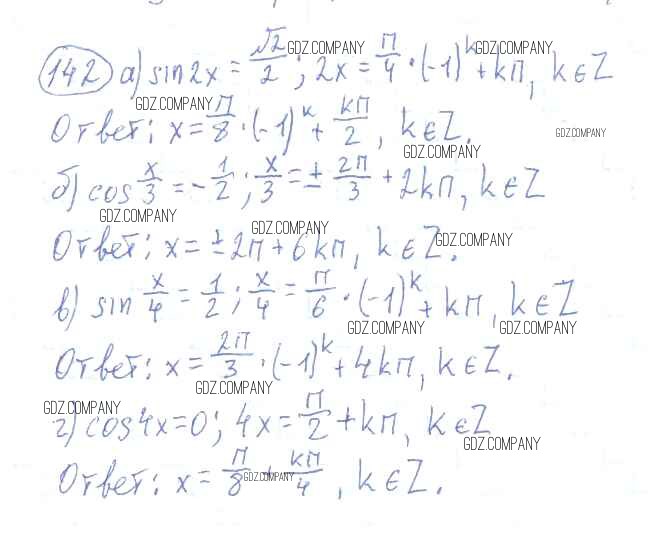 142 а) sin2x = √2/2 ; 2x = П/4 · (-1)^k + kП, k∈Z
Ответ: x = П/8 · (-1)^k + kП/2 , k∈Z.
б) cos x/3 = - 1/2 ; x/3 = ± 2П/3 + 2kП, k∈Z
Ответ: x = ± 2П + 6kП, k∈Z.
в) sin x/4 = 1/2 ; x/4 = П/6 · (-1)^k + kП, k∈Z
Ответ: x = 2П/3 · (-1)^k + 4kП, k∈Z.
г) cos4x = 0 ; 4x = П/2 + kП, k∈Z
Ответ: x = П/8 + kП/4 , k∈Z.
GDZ.COMPANY
GDZ.COMPANY
GDZ.COMPANY
GDZ.COMPANY
GDZ.COMPANY
GDZ.COMPANY
GDZ.COMPANY
GDZ.COMPANY
GDZ.COMPANY
GDZ.COMPANY
GDZ.COMPANY
GDZ.COMPANY
GDZ.COMPANY
GDZ.COMPANY